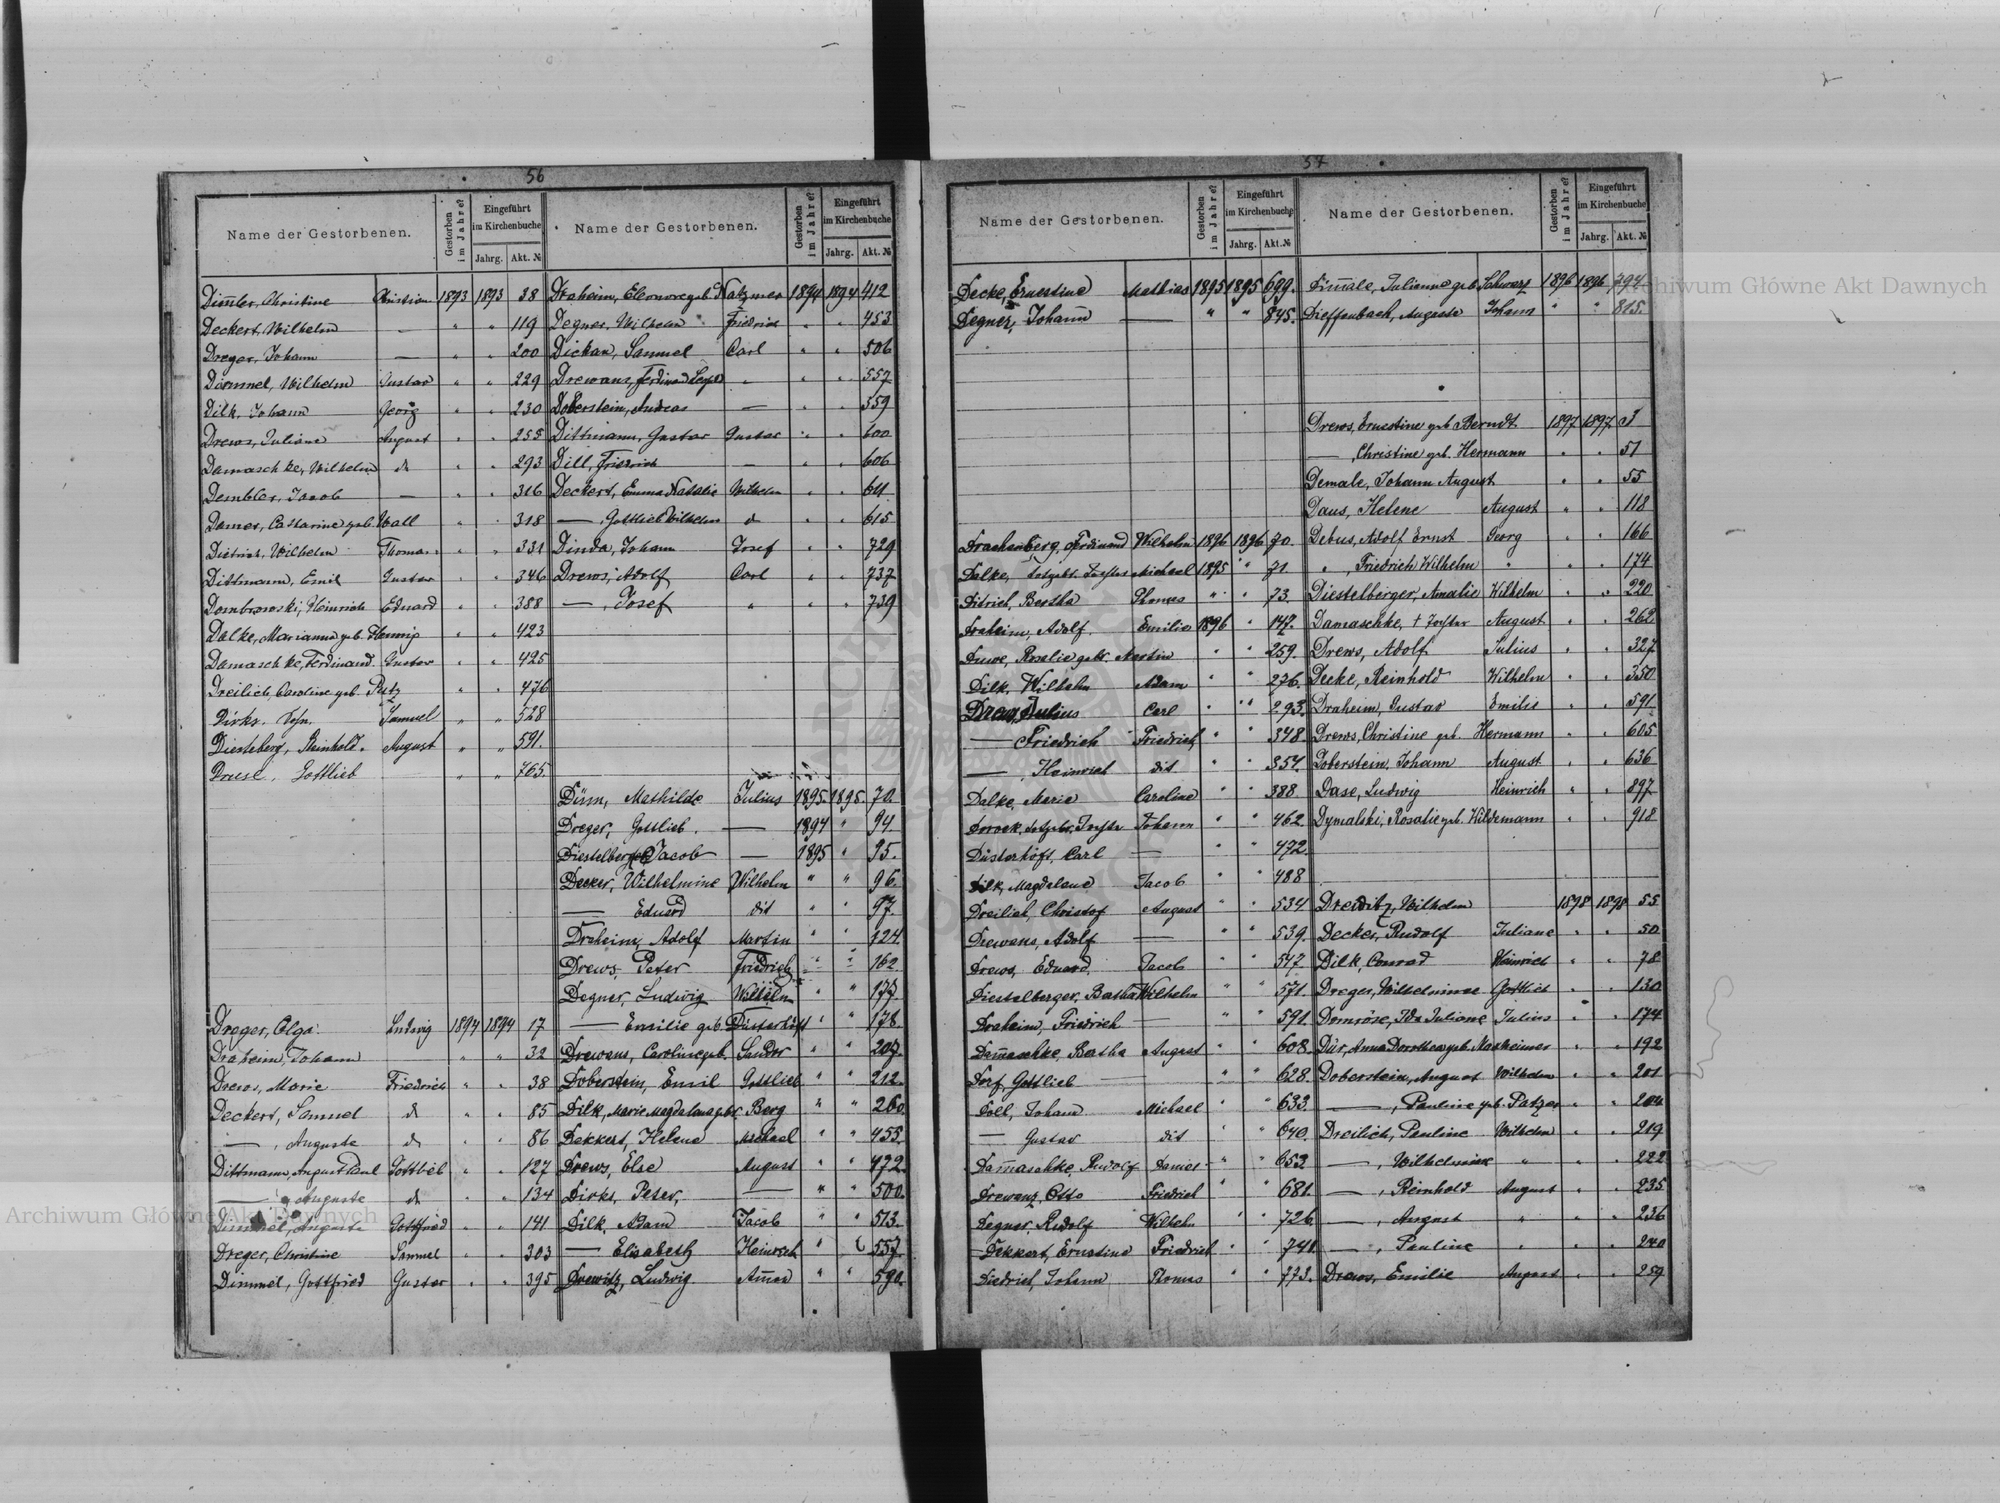 56
Name der Gestorbenen. Gestorben im Jahre? Eingeführt im Kirchenbuche Jahrg. Akt. №
Dim̅ler, Christine Christian 1893 1893 38
Deckert, Wilhelm — " " 119
Dreger, Johann — " " 200
Dümmel, Wilhelm Gustav " " 229
Dilk, Johann Georg " " 230
Drews, Juliane August " " 255
Damaschke, Wilhelm do " " 293
Dembler, Jacob — " " 316
Damer, Catharine geb. Wall " " 318
Dietrich, Wilhelm Thomas " " 331
Dittmann, Emil Gustav " " 346
Dombrowski, Heinrich Eduard " " 388
Dalke, Marianna geb. Hennig " " 423
Damaschke, Ferdinand Gustav " " 425
Dreilich, Caroline geb. Putz " " 476
Dirks, Sohn. Samuel " " 528
Diesteberg, Reinhold. August " " 591.
Druse, Gottlieb " " 765.
Dreger, Olga Ludwig 1894 1894 17
Draheim, Johann " " 32
Drews, Marie Friedrich " " 38
Deckert, Samuel do " " 85
— , Auguste do " " 86
Dittmann, August Paul Gottlieb " " 127
— Auguste do " " 134
Dimmel, Auguste Gottfried " " 141
Dreger, Christine Samuel " " 303
Dimmel, Gottfried Gustav " " 395
Name der Gestorbenen. Gestorben im Jahre? Eingeführt im Kirchenbuche Jahrg. Akt. №
Draheim, Eleonore geb. Natzmer 1894 1894 412
Degner, Wilhelm Friedrich " " 453
Dickau, Samuel Carl " " 506
Drewans, Ferdinand " " 557
Doberstein, Andreas — " " 559
Dittmann, Gustav Gustav " " 600
Dill, Friedrich — " " 606
Deckert, Emma Natalie Wilhelm " " 611
— , Gottlieb Wilhelm do " " 615
Dinda, Johann Josef " " 729
Drews, Adolf Carl " " 737
— , Josef " " " 739
Dünn, Mathilde Julius 1895. 1895. 70.
Dreger, Gottlieb. — 1894 " 94.
Diestelberger Jacob — 1895 " 95.
Decker, Wilhelmine Wilhelm " " 96.
— Eduard dit " " 97.
Draheim, Adolf Martin " " 124.
Drews Peter Friedrich " " 162
Degner, Ludwig Wilhelm " " 177.
— Emilie geb. Düsterhöft " " 178.
Drewans, Caroline geb. Sander " " 207.
Doberstein, Emil Gottlieb " " 212.
Dilk, Marie Magdalena geb. Berg " " 260.
Dekkert, Helene Michael " " 455.
Drews, Else August " " 472.
Dirks, Peter, — " " 500.
Dilk, Adam Jacob " " 513.
— Elisabeth Heinrich " " 557.
Drewitz, Ludwig " " 590.
57
Name der Gestorbenen. Gestorben im Jahre? Eingeführt im Kirchenbuche Jahrg. Akt. №
Decke, Ernestine Mathias 1895 1895 699.
Degner, Johann — " " 845.
Drachenberg, Ferdinand Wilhelm 1896 1896 70.
Dalke, Totgeb. Tochter Michael 1895 " 71.
Ditrich, Bertha Thomas " " 73.
Draheim, Adolf. Emilie 1896 " 147.
Duwe, Rosalie gebr. Martin " " 259.
Dilk, Wilhelm Adam " " 276.
Drews, Julius Carl " " 293.
— Friedrich Friedrich " " 348.
— , Heinrich dit " " 357.
Dalke, Marie Caroline " " 388
Johann " " 462.
Düsterhöft, Carl — " " 472.
Dilk, Magdalena Jacob " " 488
Dreilich, Christof August " " 534
Drewans, Adolf — " " 539.
Drews, Eduard Jacob " " 547.
Diestelberger, Bertha Wilhelm " " 571.
Draheim, Friedrich — " " 591.
Dam̅aschke, Bertha August " " 608.
Dorf, Gottlieb — " " 628.
Doll, Johann Michael " " 633.
— Gustav dit " " 640.
Damaschke, Rudolf Daniel " " 653
Drewanz, Otto Friedrich " " 681.
Degner, Rudolf Wilhelm " " 726
Dekkert, Ernestine Friedrich " " 741.
Diedrich, Johann Thomas " " 773.
Name der Gestorbenen. Gestorben im Jahre? Eingeführt im Kirchenbuche Jahrg. Akt. №
Dim̅ale, Julianne geb. Schwarz 1896 1896 794
Dieffenbach, Auguste Johann " " 815.
Drews, Ernestine geb. Berndt 1897 1897 3
— , Christine geb. Hermann " " 51
Demale, Johann August " " 55
Daus, Helene August " " 118
Debus, Adolf Ernst Georg " " 166
" , Friedrich Wilhelm " " " 174
Diestelberger, Amalie Wilhelm " " 220
Damaschke, † Tochter August " " 262
Drews, Adolf Julius " " 327
Decke, Reinhold Wilhelm " " 350
Draheim, Gustav Emilie " " 591.
Drews, Christine geb. Hermann " " 605
Doberstein, Johann August " " 636
Dase, Ludwig Heinrich " " 897
Dymalski, Rosalie geb. Wildemann " " 918
Drewitz, Wilhelm 1898 1898 55
Decker, Rudolf Juliane " " 50
Dilk, Conrad Heinrich " " 78
Dreger, Wilhelmine Gottlieb " " 130
Domröse, Ida Juliane Julius " " 174
Dür, Anna Dorothea geb. Manheimer " " 192
Doberstein, August Wilhelm " " 201
— , Pauline geb. Patzer " " 204
Dreilich, Pauline Wilhelm " " 219
— , Wilhelmine " " " 222
— , Reinhold August " " 235
— , August " " " 236
— , Pauline " " " 240
Drews, Emilie August " " 259
Archiwum Główne Akt Dawnych
Archiwum Główne Akt Dawnych